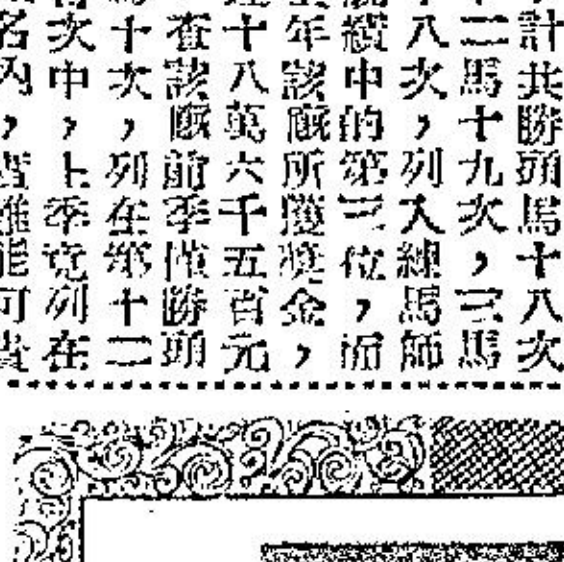 計共勝頭馬十八次
二馬十九次，三馬
八次，列入練馬師
績中的第三位，而
年該廐所獲獎金，
十八萬六千五百元
查該廐前季僅勝頭
十次，列在第十二
次中，上季竟列在
名內，
能可貴